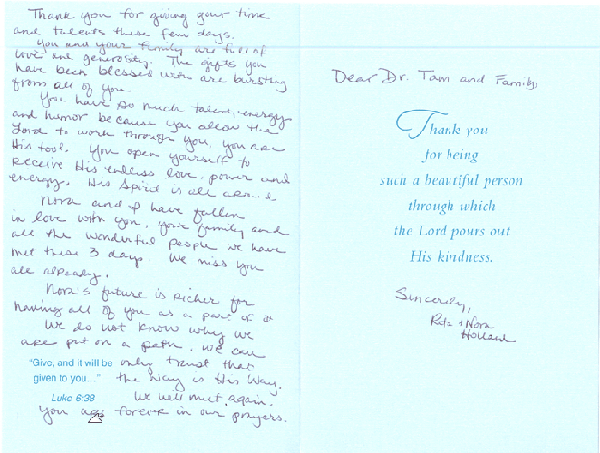 Thank you for giving your time
and talents these few days.
You and your family are full of
love and generosity. The gifts you
have been blessed with are bursting
from all of you.
You have so much talent, energy
and humor because you allow the
Lord to work through you, you are
His tool. You open yourself to
receive His endless love, power and
energy. His Spirit is all
Nora and I have fallen
in love with you, your family and
all the wonderful people we have
met these 3 days. We miss you
all already.
Nora's future is richer for
having all of you as a part of it
We do not know why we
are put on a path. We can
"Give, and it will be only trust that
given to you..." the Way is His Way.
Luke 6:38 We will meet again.
You are forever in our prayers.
Dear Dr. Tam and Family,
Thank you
for being
such a beautiful person
through which
the Lord pours out
His kindness.
Sincerely,
& Nora
Holland